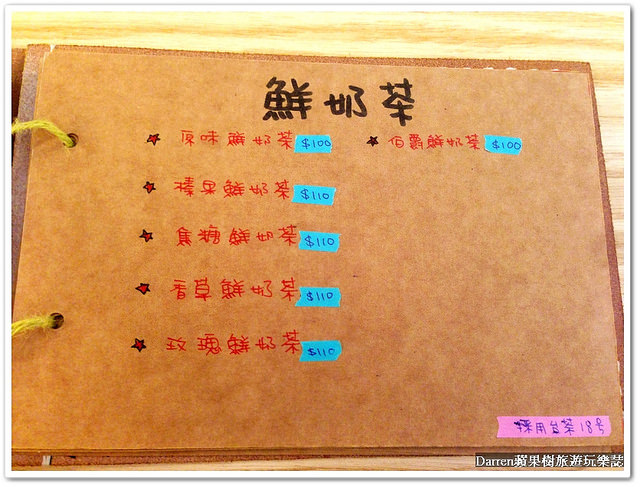 鮮奶茶
原味鮮奶茶 $100
榛果鮮奶茶 $110
焦糖鮮奶茶 $110
香草鮮奶茶 $110
玫瑰鮮奶茶 $110
伯爵鮮奶茶 $100
採用台茶18号
Darren蘋果樹旅遊玩樂誌